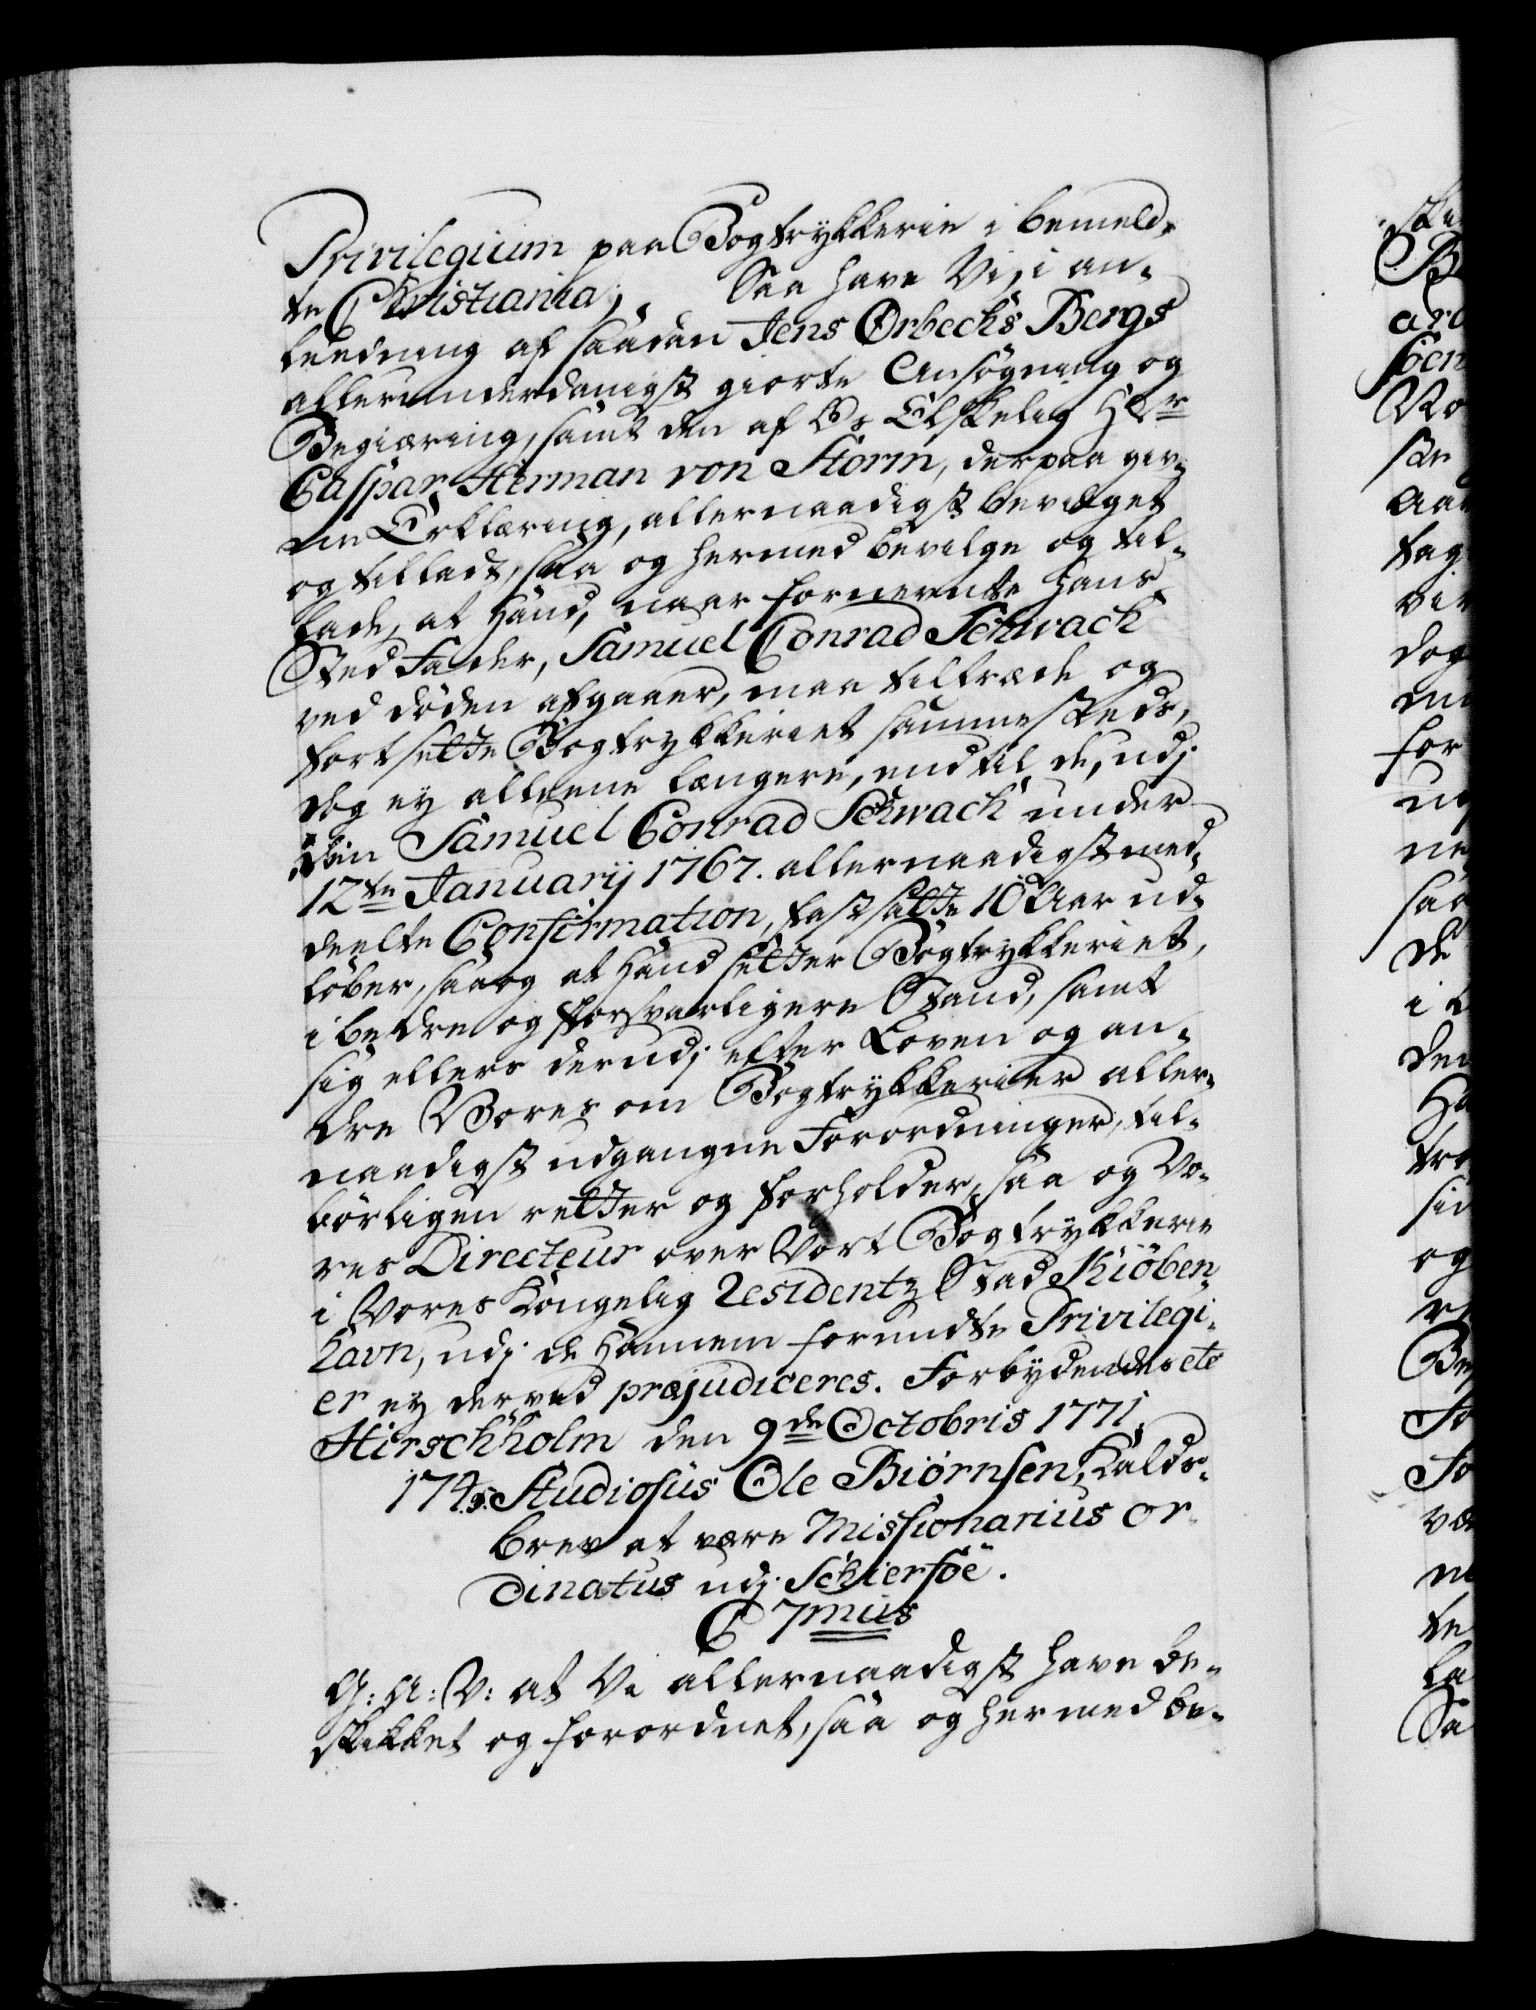 Privilegium paa Bogtrykkerie i bemeld-
te Christiania; Saa have Vi, i an-
leedning af saadan Jens Ørbechs Bergs
allerunderdanigst giorte Ansøgning og
Begiæring, samt den af Os Elskelig Hr
Caspar Herman von Storm, derpaa giv-
ne Erklæring, allernaadigst bevilget
og tilladt, saa og hermed bevilge og til-
lade, at Hand, naar fornevnte Hans
Sted Fader, Samuel Conrad Schwach
ved døden afgaaer, maa tiltræde og
fortsette Bogtrykkeriet sammesteds,
dog ey alleene længere, end til de, udj
den Samuel Conrad Schwach under
12te Januarij 1767. allernaadigst med-
deelte Confirmation, fastsatte 10 Aar ud-
løber, saa og at Hand setter Bogtrykkeriet,
i bedre og forsvarligere Stand, samt
sig ellers derudj efter Loven og an-
dre Vores om Bogtrykkerier aller-
naadigst udgangne Forordninger, til-
børligen retter og forholder, saa og Vo-
res Directeur over Vort Bogtrykkerie
i Vores Kongelig Residentz Stad Kiöben-
havn, udj de Hannem forundte Privilegi-
er ey derved præjudiceres. Forbydendes etc
Hirschholm den 9de Octobris 1771.
174. Studiosus Ole Biørnsen, Kalds-
brev at være Missionarius or-
dinatus udj Schierföe.
C 7mus
G: A: V: at Vi allernaadigst have be-
skikket og forordnet, saa og hermed be-